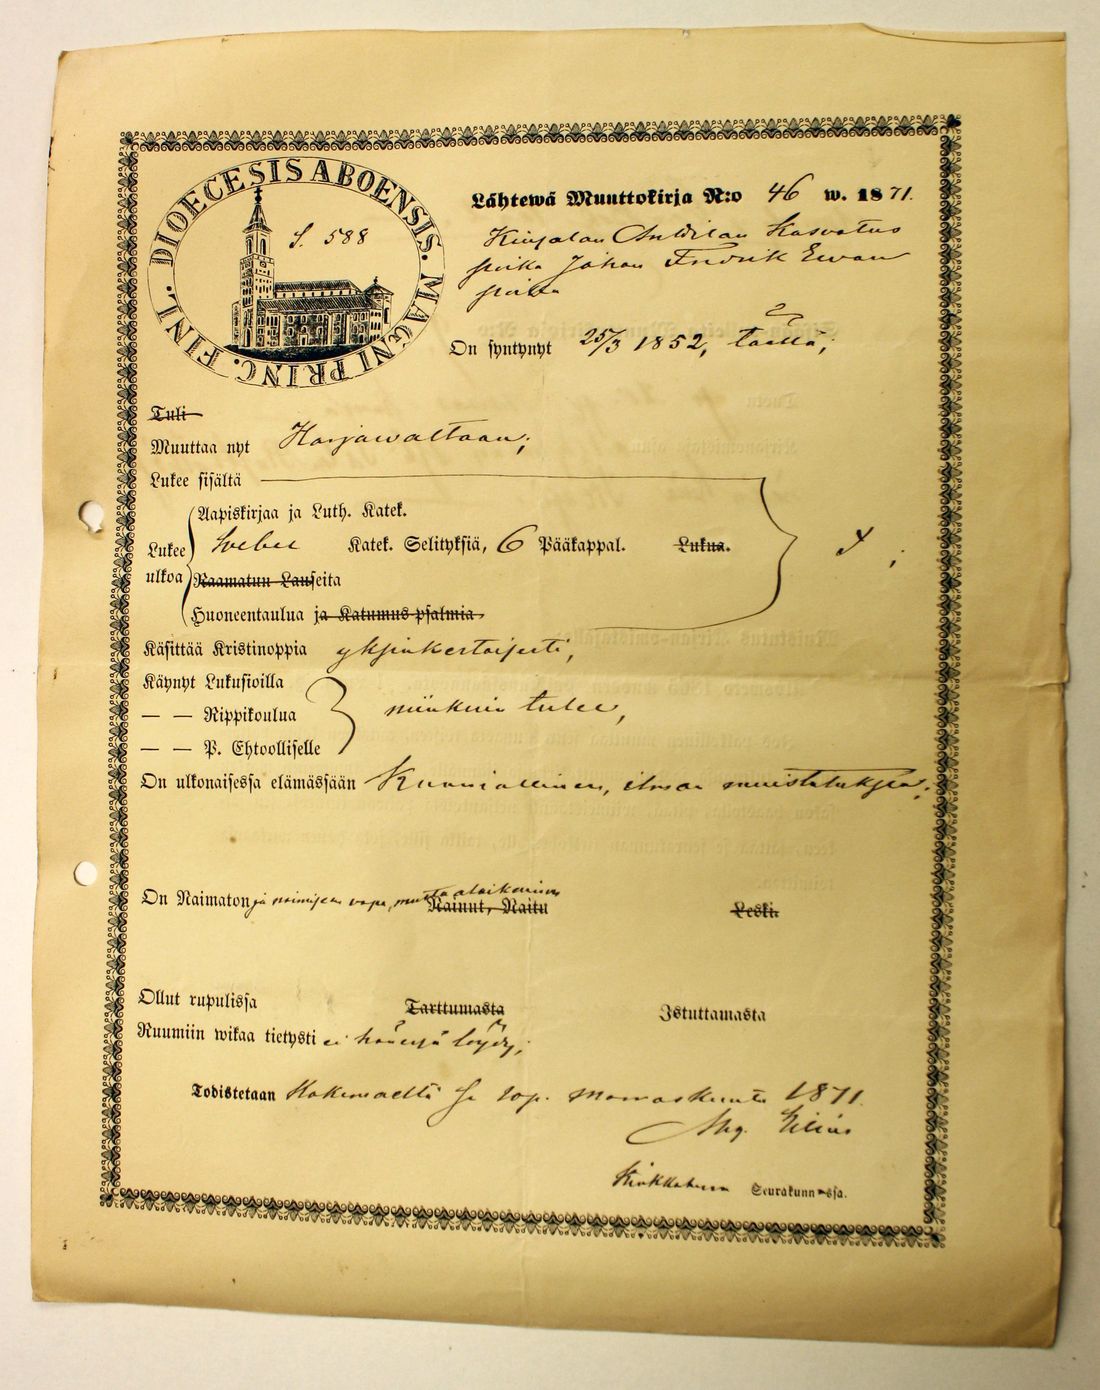 DIOECESIS ABOENSIS. MAGNI PRINC. FINL.
S. 588
Lähtewä Muuttokirja N:o 46 w. 1871.
Kinjalan Anttilan Kasvatus
poika Johan Fredrik Ewan
poika
On syntynyt 25/3 1852, täällä;
Tuli
Muuttaa nyt Harjawaltaan;
Lukee sisältä
Aapiskirjaa ja Luth. Katek.
Lukee ulkoa Svebel. Katek. Selityksiä, 6 Pääkappal. Lukua.
Raamatun Lauseita
Huoneentaulua ja Katumus-psalmia
Käsittää Kristinoppia yksinkertaisesti,
Käynyt Lukusioilla
— — Rippikoulua niinkuin tulee,
— — P. Ehtoolliselle
On ulkonaisessa elämässään Kunniallinen, ilman muistutuksia;
On Naimaton ja naimiseen vapa, mutta alaikäinen
Nainut, Naitu Leski.
Ollut rupulissa Tarttumasta Istuttamasta
Ruumiin wikaa tietysti ei hänessä löydy;
Todistetaan Kokemäeltä 1871.
Kirkkoherra Seurakunnassa.